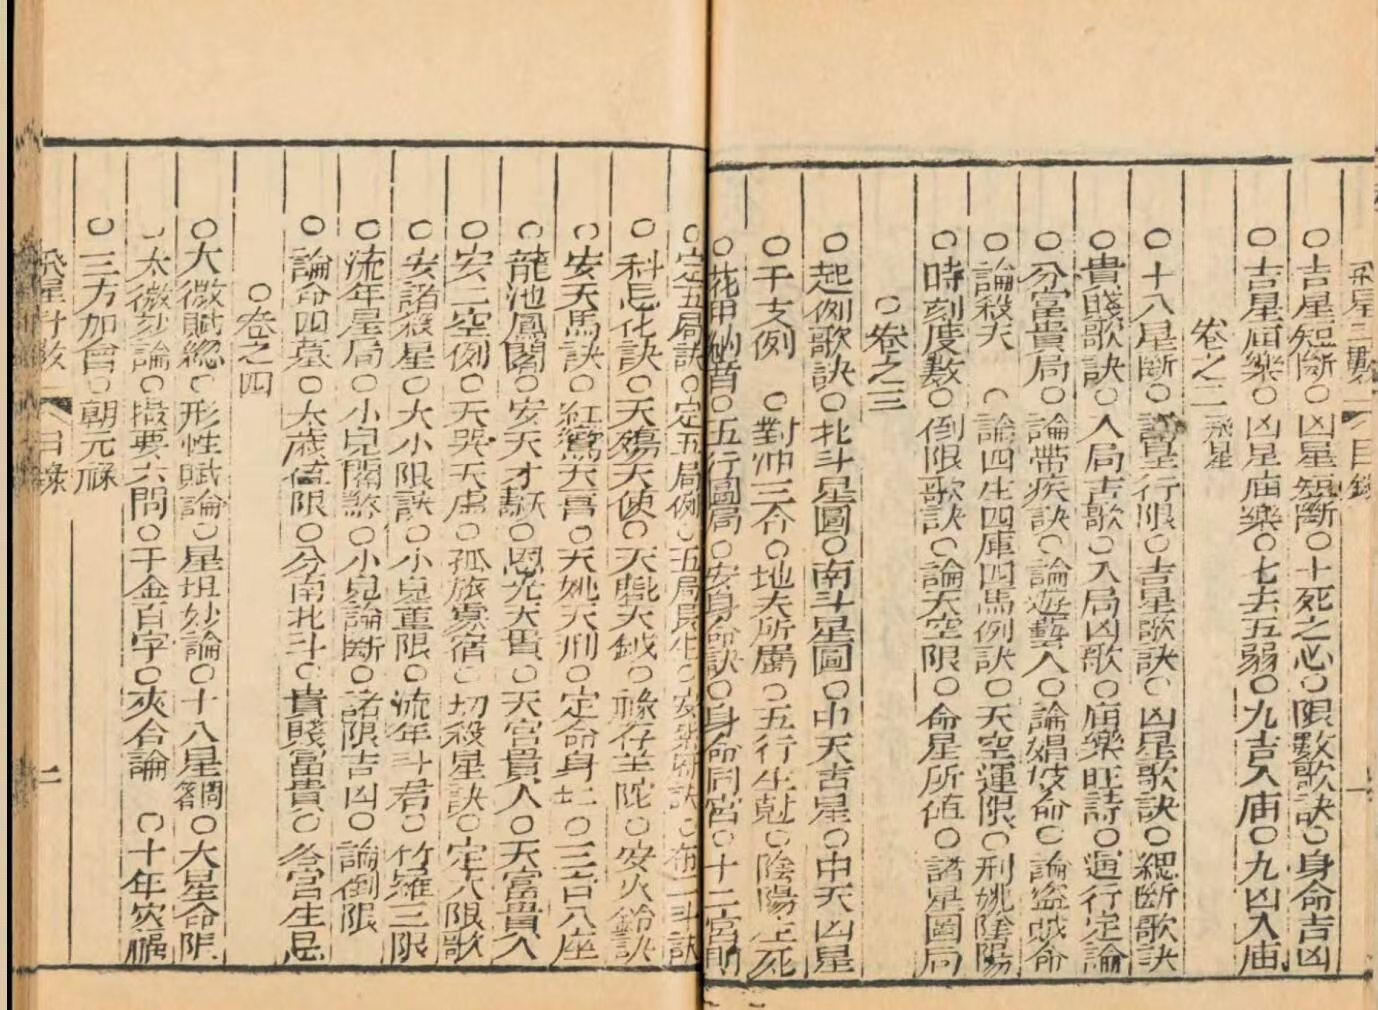 飛星二數 目錄
○吉星短斷○凶星短斷○十死之心○限數歌訣○身命吉凶
○吉星庙樂○凶星庙樂○七去五弱○九吉入庙○九凶入庙
卷之二 飛星
○十八星斷○諸星行限○吉星歌訣○凶星歌訣○總斷歌訣
○貴賤歌訣○入局吉歌○入局凶歌○庙樂旺詩○運行定論
○分富貴局○論帶疾訣○論遊藝人○論娼妓命○論盗賊命
○論殺夫 ○論四生四庫四馬例訣○天空運限○刑姚陰陽
○時刻度數○倒限歌訣○論天空限○命星所值○諸星圖局
○卷之三
○起例歌訣○北斗星圖○南斗星圖○中天吉星○中天凶星
○干支例 ○對冲三合○地支所屬○五行生尅○陰陽生死
○花甲納音○五行圖局○安身命訣○身命同宮○十二宮
○定五局訣○定五局例○五局長生○安紫 訣○布二斗訣
○科忌化訣○天殤天使○天魁天鉞○祿存羊陀○安火鈴訣
○安天馬訣○紅鸞天喜○天姚天刑○定命身主○三台八座
○龍池鳳閣○安天才壽○恩光天貴○天官貴人○天富貴人
○安二空例○天哭天虛○孤旅寡宿○刧殺星訣○定大限歌
○安諸殺星○大小限訣○小兒童限○流年斗君○竹羅三限
○流年星局○小兒關煞○小兒論斷○諸限吉凶○論倒限
○論命四墓○太歲值限○分南北斗○貴賤富貴○各宮生忌
○卷之四
○大微賦總○形性賦論○星垣妙論○十八星 ○大星命限
○太微玅論○撮要六問○千金百字○夾合論 ○十年灾
○三方加會○朝元祿
飛星斗数 目錄 二